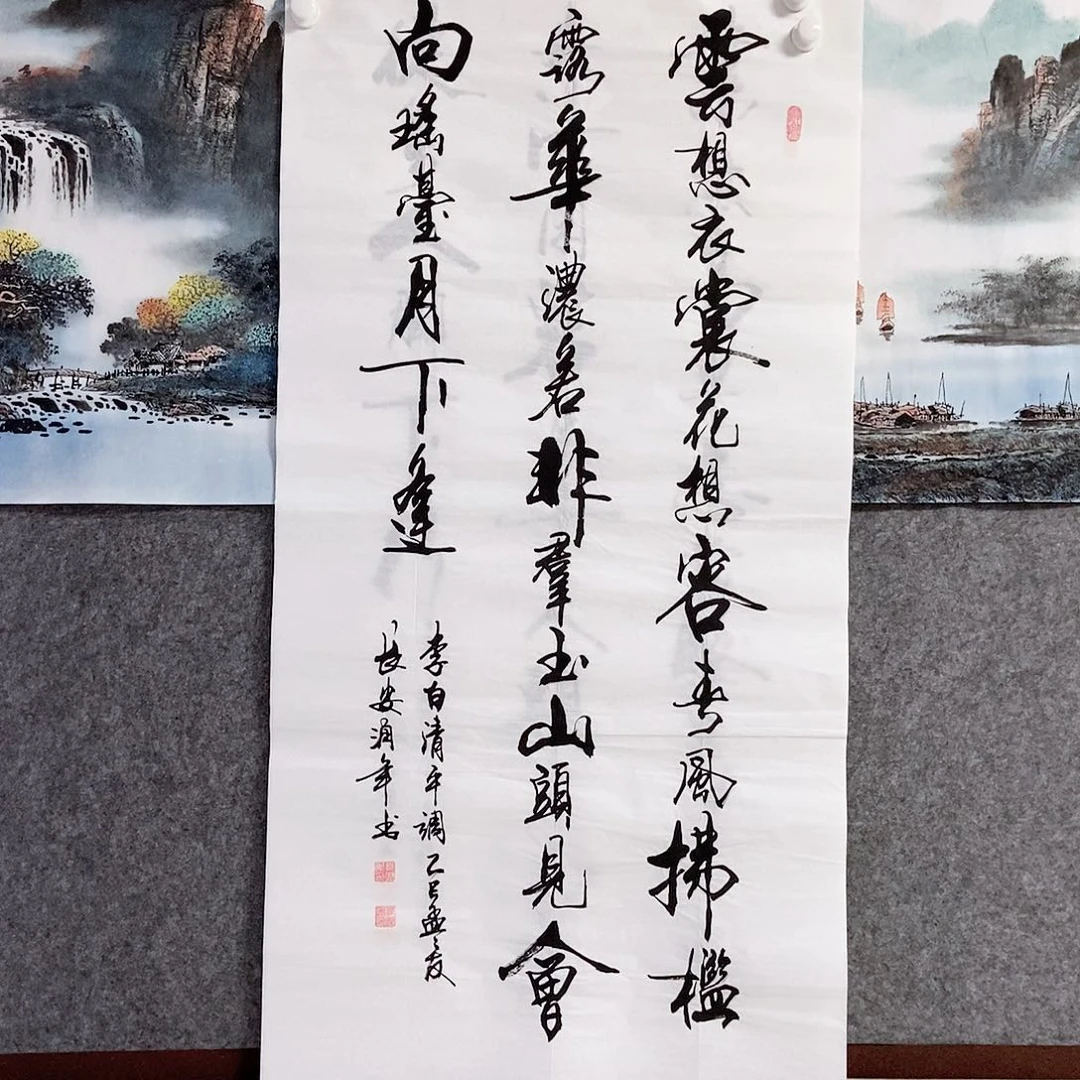 雲想衣裳花想容春風拂檻
露華濃若非羣玉山頭見會
向瑤臺月下逢
李白清平調乙巳孟夏
長安潤年书